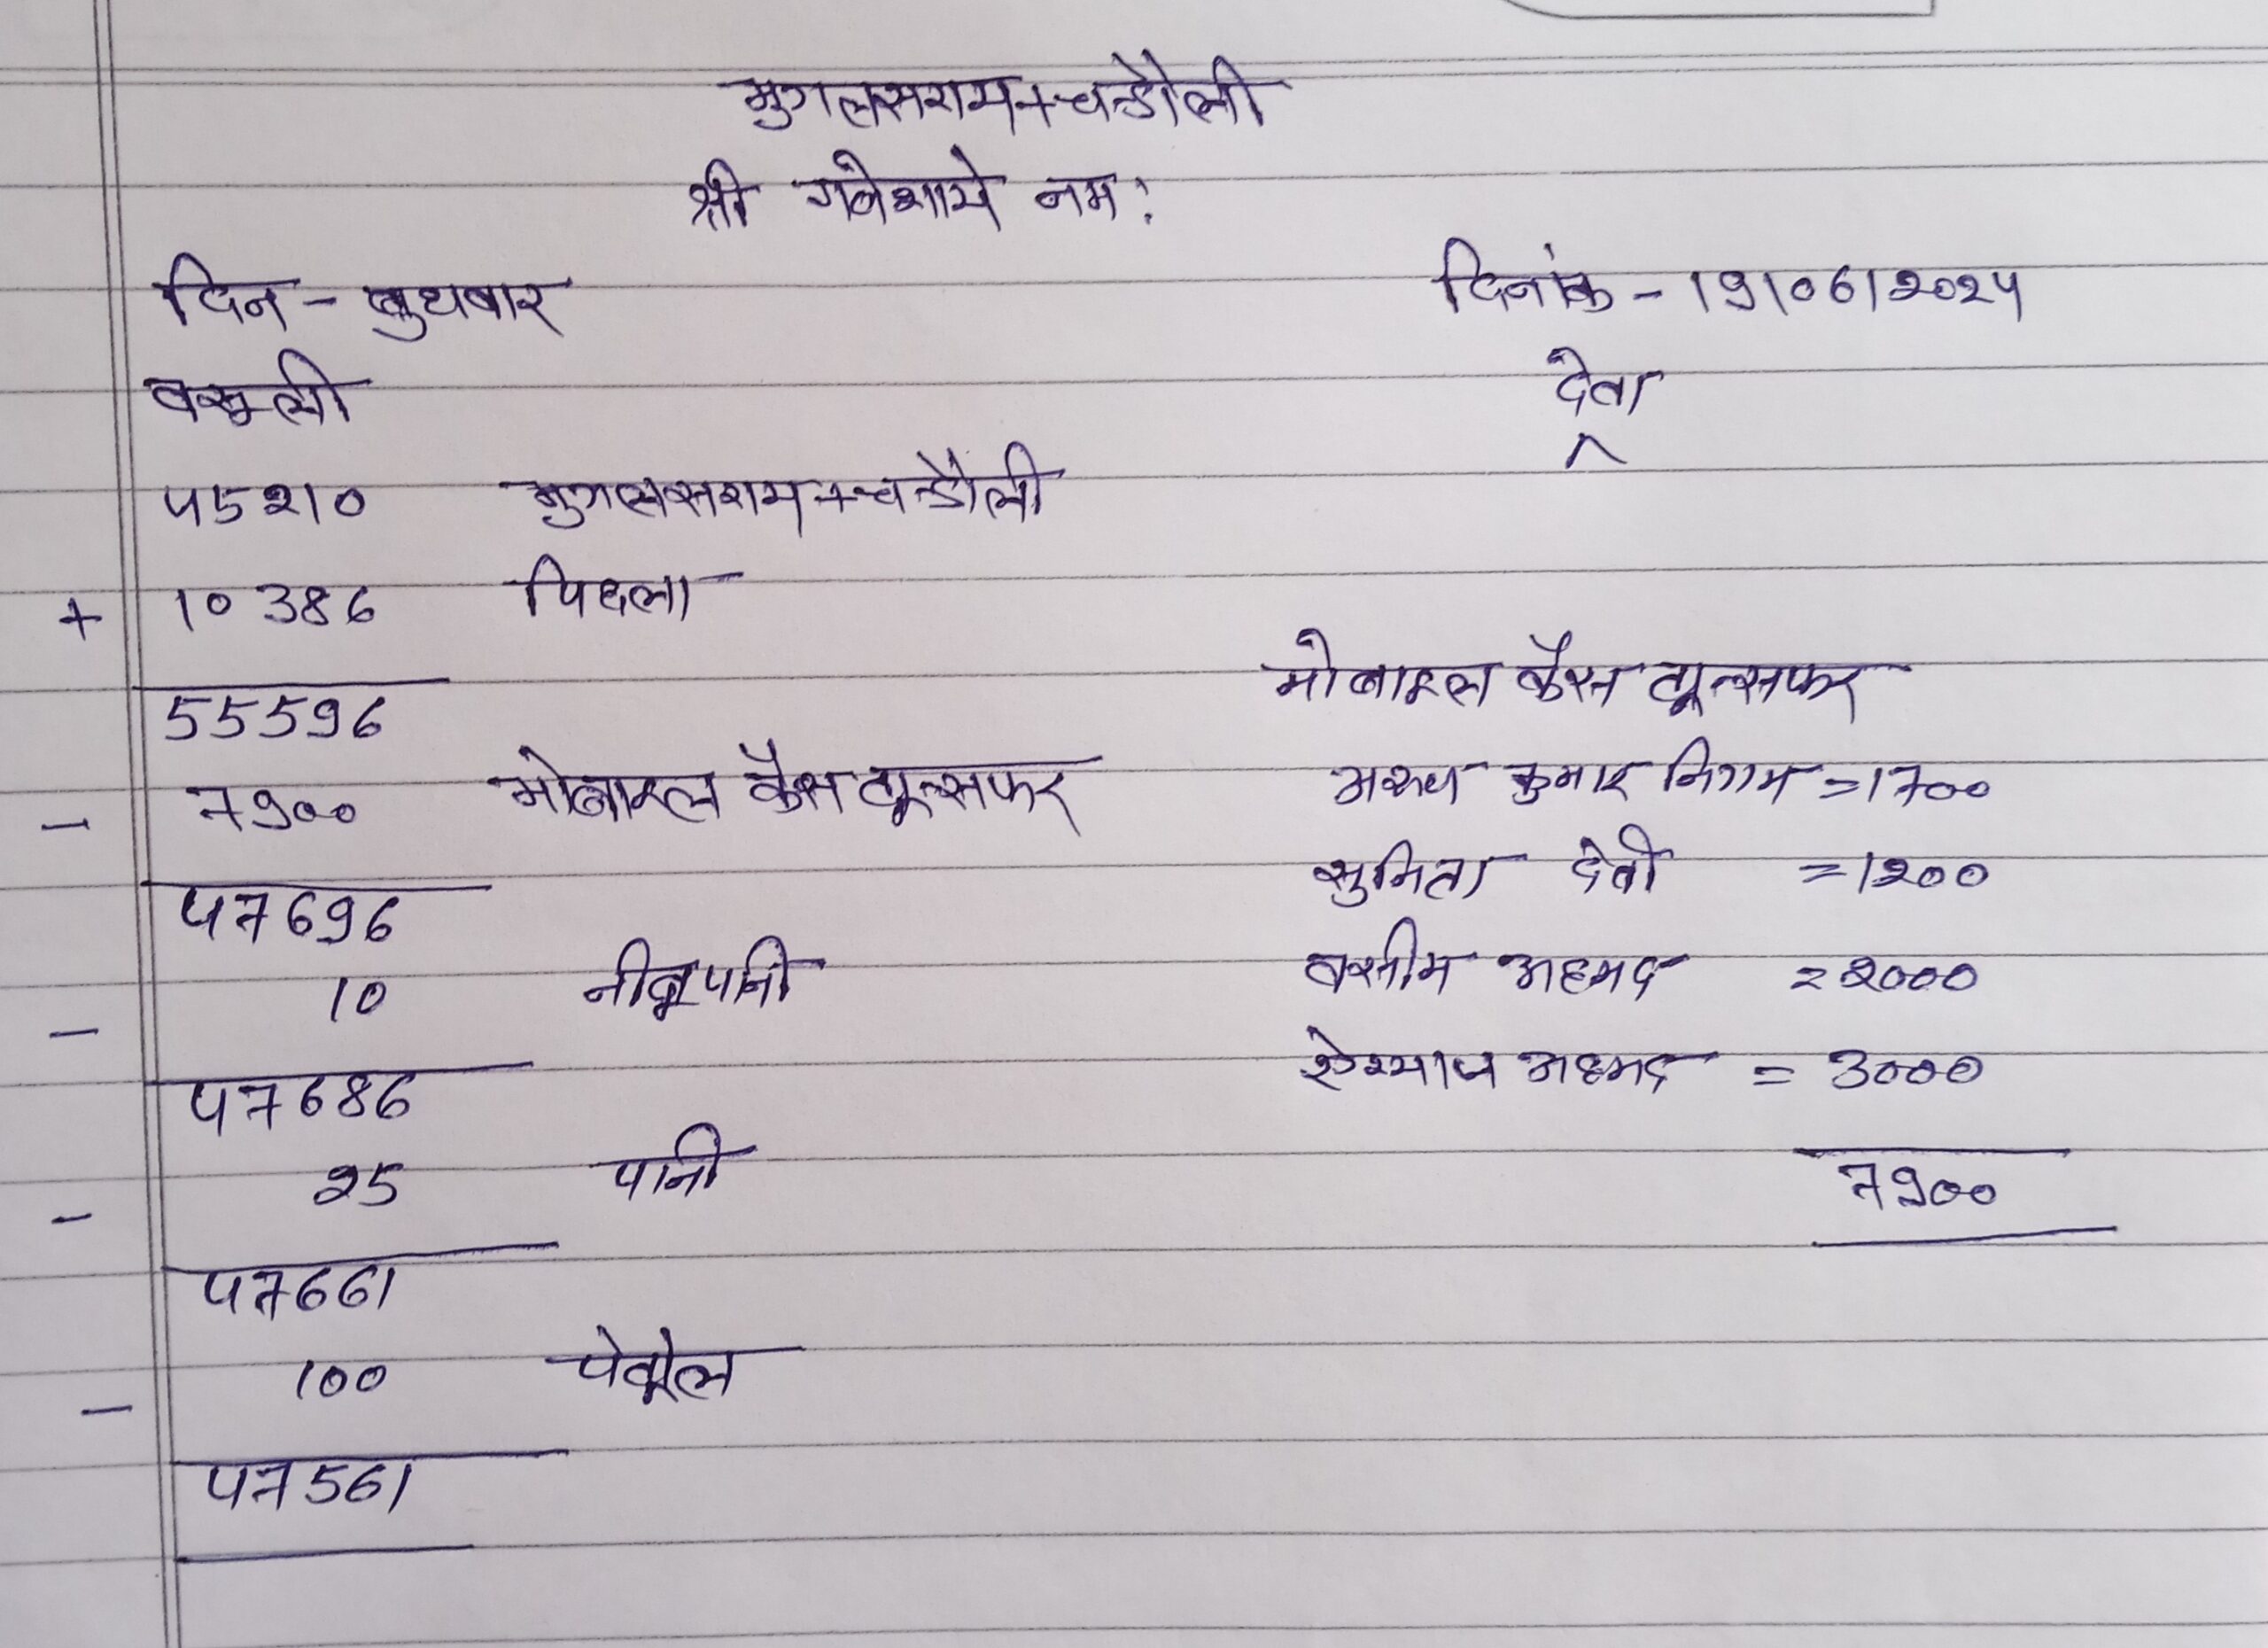 मुगलसराय+चन्डौली
श्री गनेशाये नम:
दिन - बुधबार दिनांक - 19/06/2024
वसूली देता
45210 मुगलसराय+चन्डौली
+ 10386 पिछला
55596
मोबाइल कैस ट्रान्सफर
- 7900 मोबाइल कैस ट्रान्सफर
कुमार निगम = 1700
47696
सुमिता देवी = 1200
- 10 नीबू पानी
वसीम अहमद = 2000
47686
अहमद = 3000
- 25 पानी
7900
47661
- 100 पेट्रोल
47561